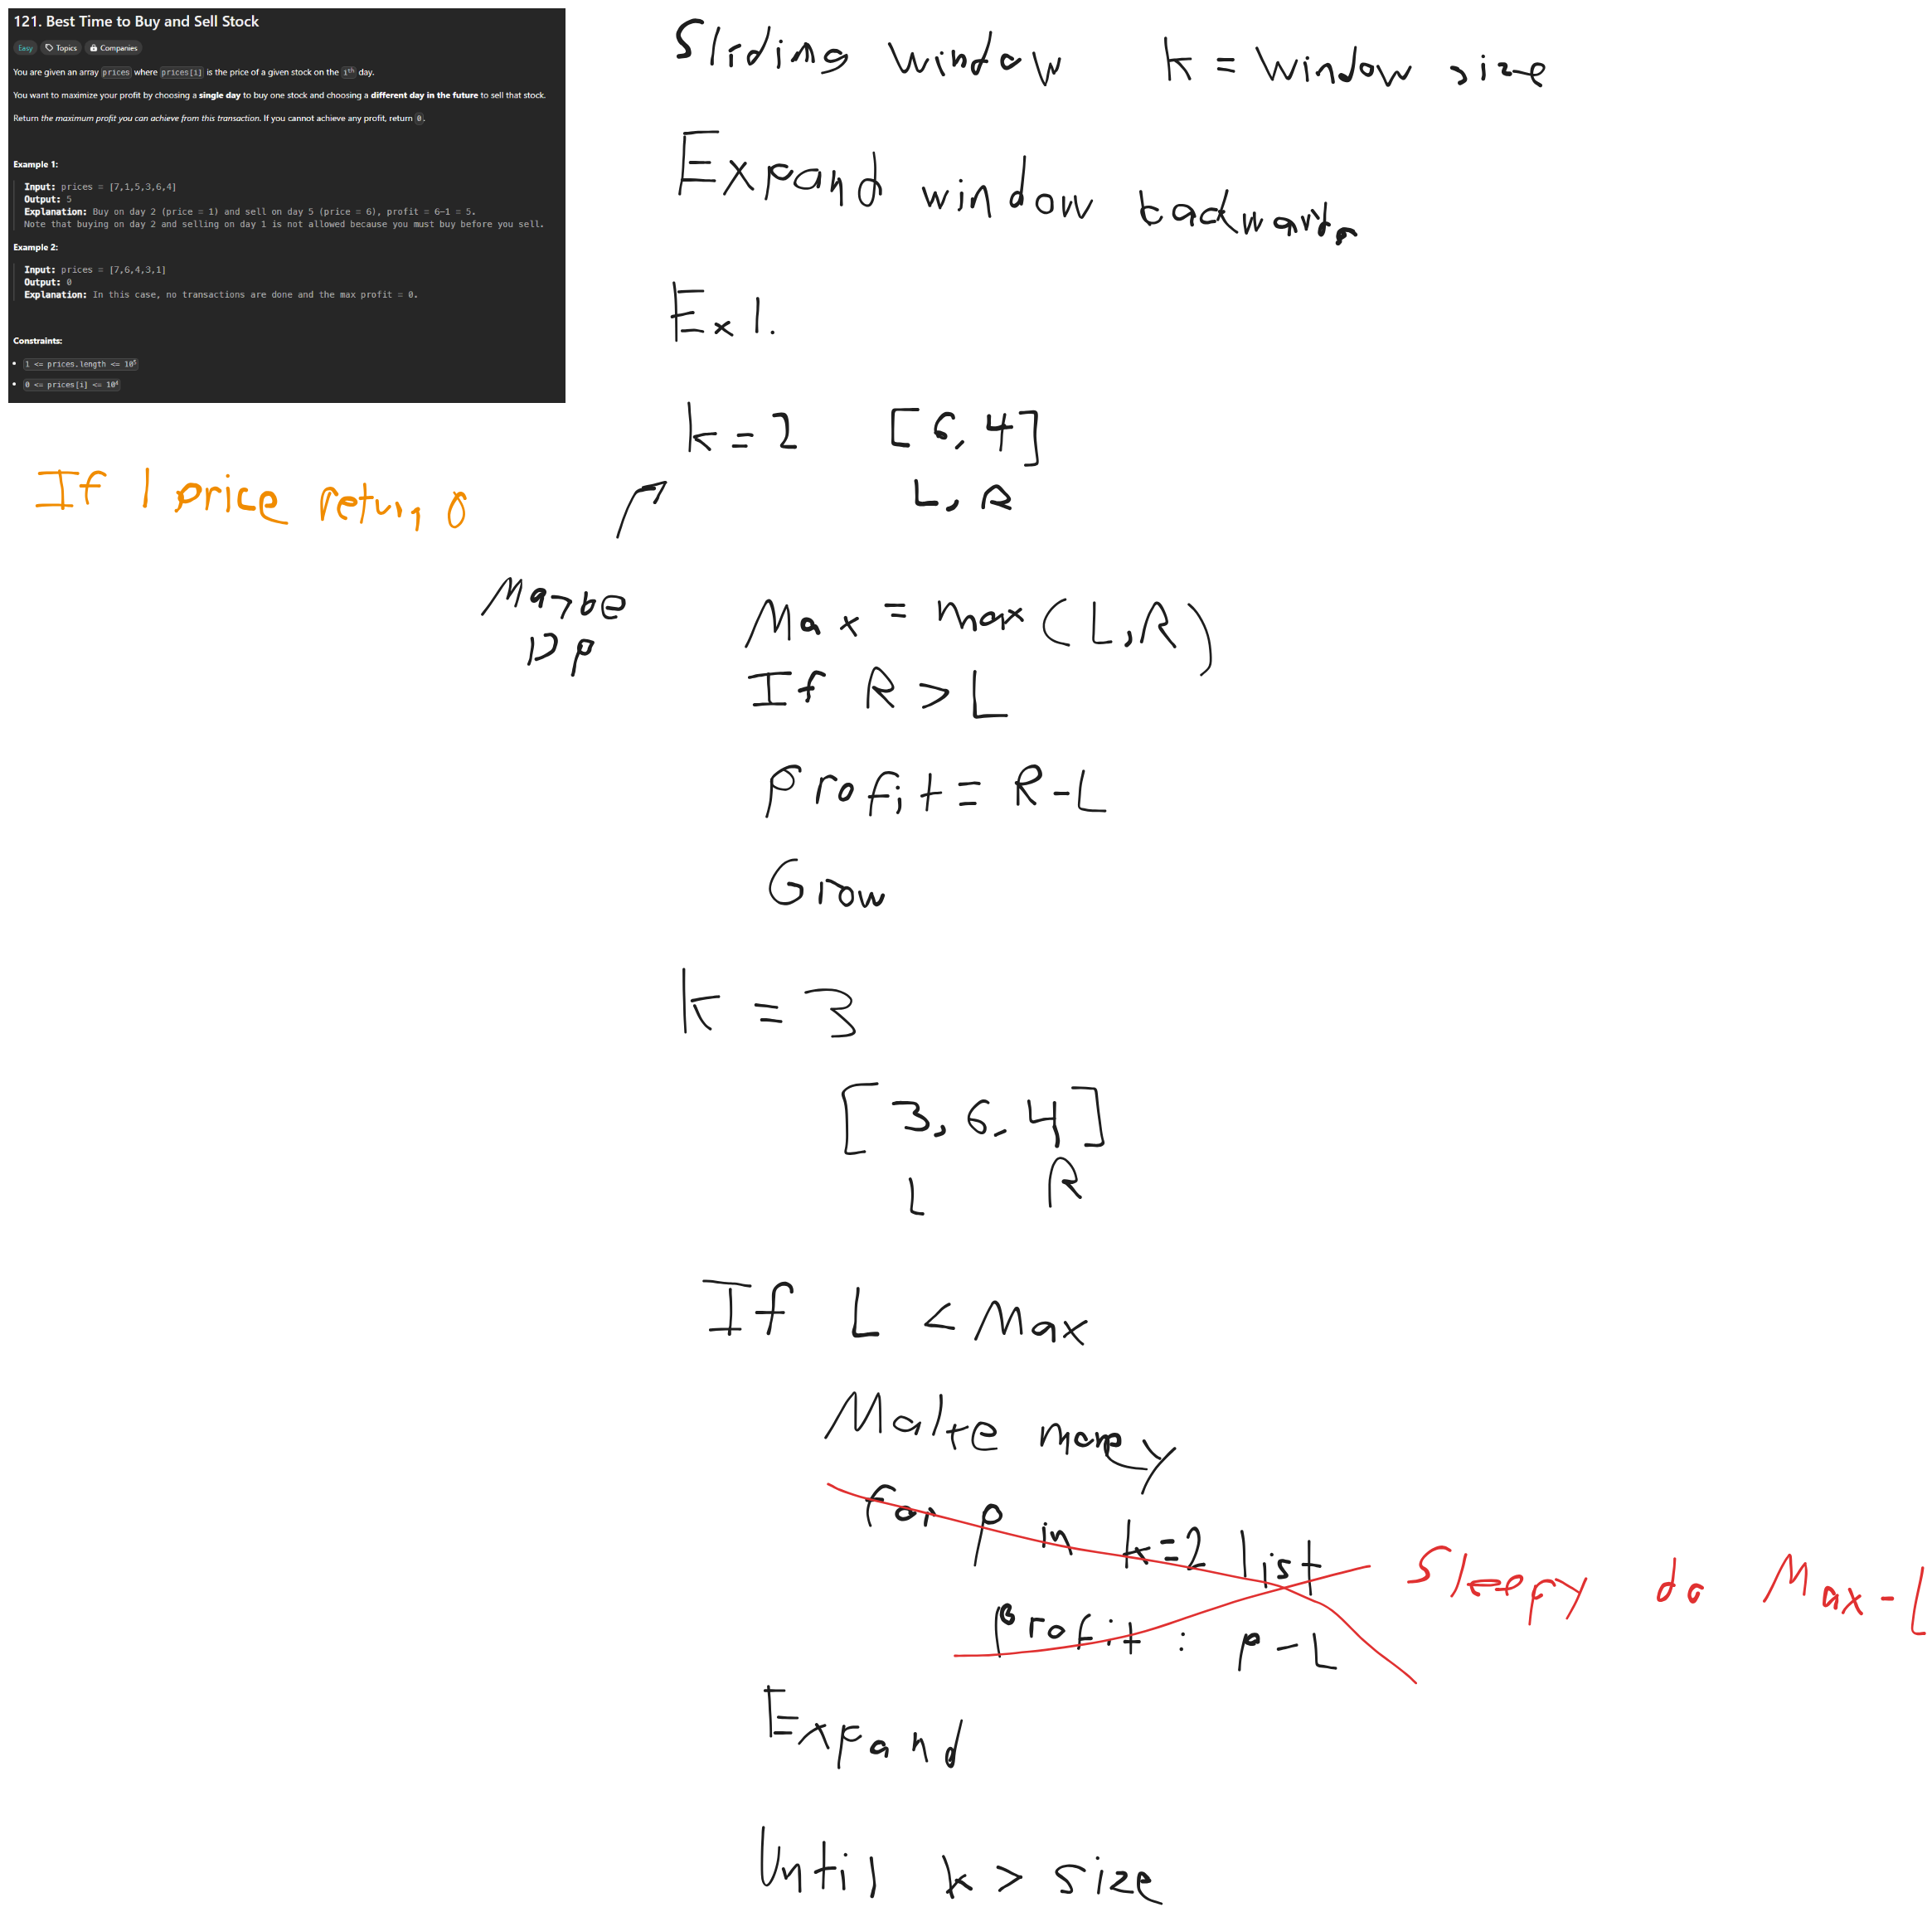 121. Best Time to Buy and Sell Stock
Easy Topics Companies
You are given an array prices where prices[i] is the price of a given stock on the ith day.
You want to maximize your profit by choosing a single day to buy one stock and choosing a different day in the future to sell that stock.
Return the maximum profit you can achieve from this transaction. If you cannot achieve any profit, return 0.
Example 1:
Input: prices = [7,1,5,3,6,4]
Output: 5
Explanation: Buy on day 2 (price = 1) and sell on day 5 (price = 6), profit = 6-1 = 5.
Note that buying on day 2 and selling on day 1 is not allowed because you must buy before you sell.
Example 2:
Input: prices = [7,6,4,3,1]
Output: 0
Explanation: In this case, no transactions are done and the max profit = 0.
Constraints:
1 <= prices.length <= 10⁵
0 <= prices[i] <= 10⁴
If 1 price return 0
Sliding window k = window size
Expand window backwards
Ex 1.
k = 2 [6, 4]
L, R
Maybe
DP
Max = max(L,R)
If R > L
Profit = R-L
Grow
k = 3
[3, 6, 4]
L R
If L < Max
Make money
for p in k=2 list
Profit : p-L
Sleepy do Max-L
Expand
Until k > size